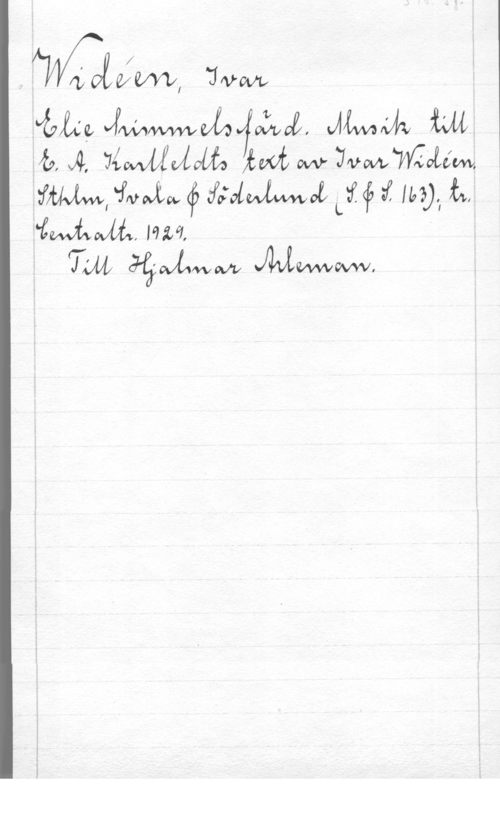 Widéen, Ivar
Elie himmelsfärd. Musik till
E. A. Karlfeldts text av Ivar Widéen.
Sthlm, Svala & Söderlund (S. & S. 163); tr.
Centraltr. 1929.
Till Hjalmar Arleman.